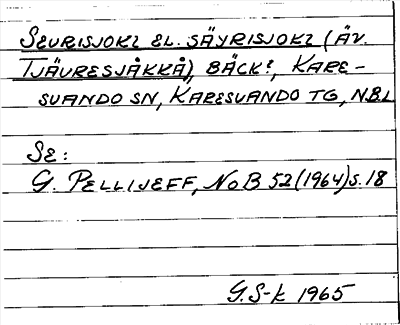 SEURISJOKI EL. SÄYRISJOKI (ÄV.
TJÄURESJÅKKÅ), BÄCK?, KARE-
SUANDO SN, KARESUANDO TG, N.B.L
SE:
G. PELLIJEFF, NOB 52 (1964) S. 18
G.S-k 1965